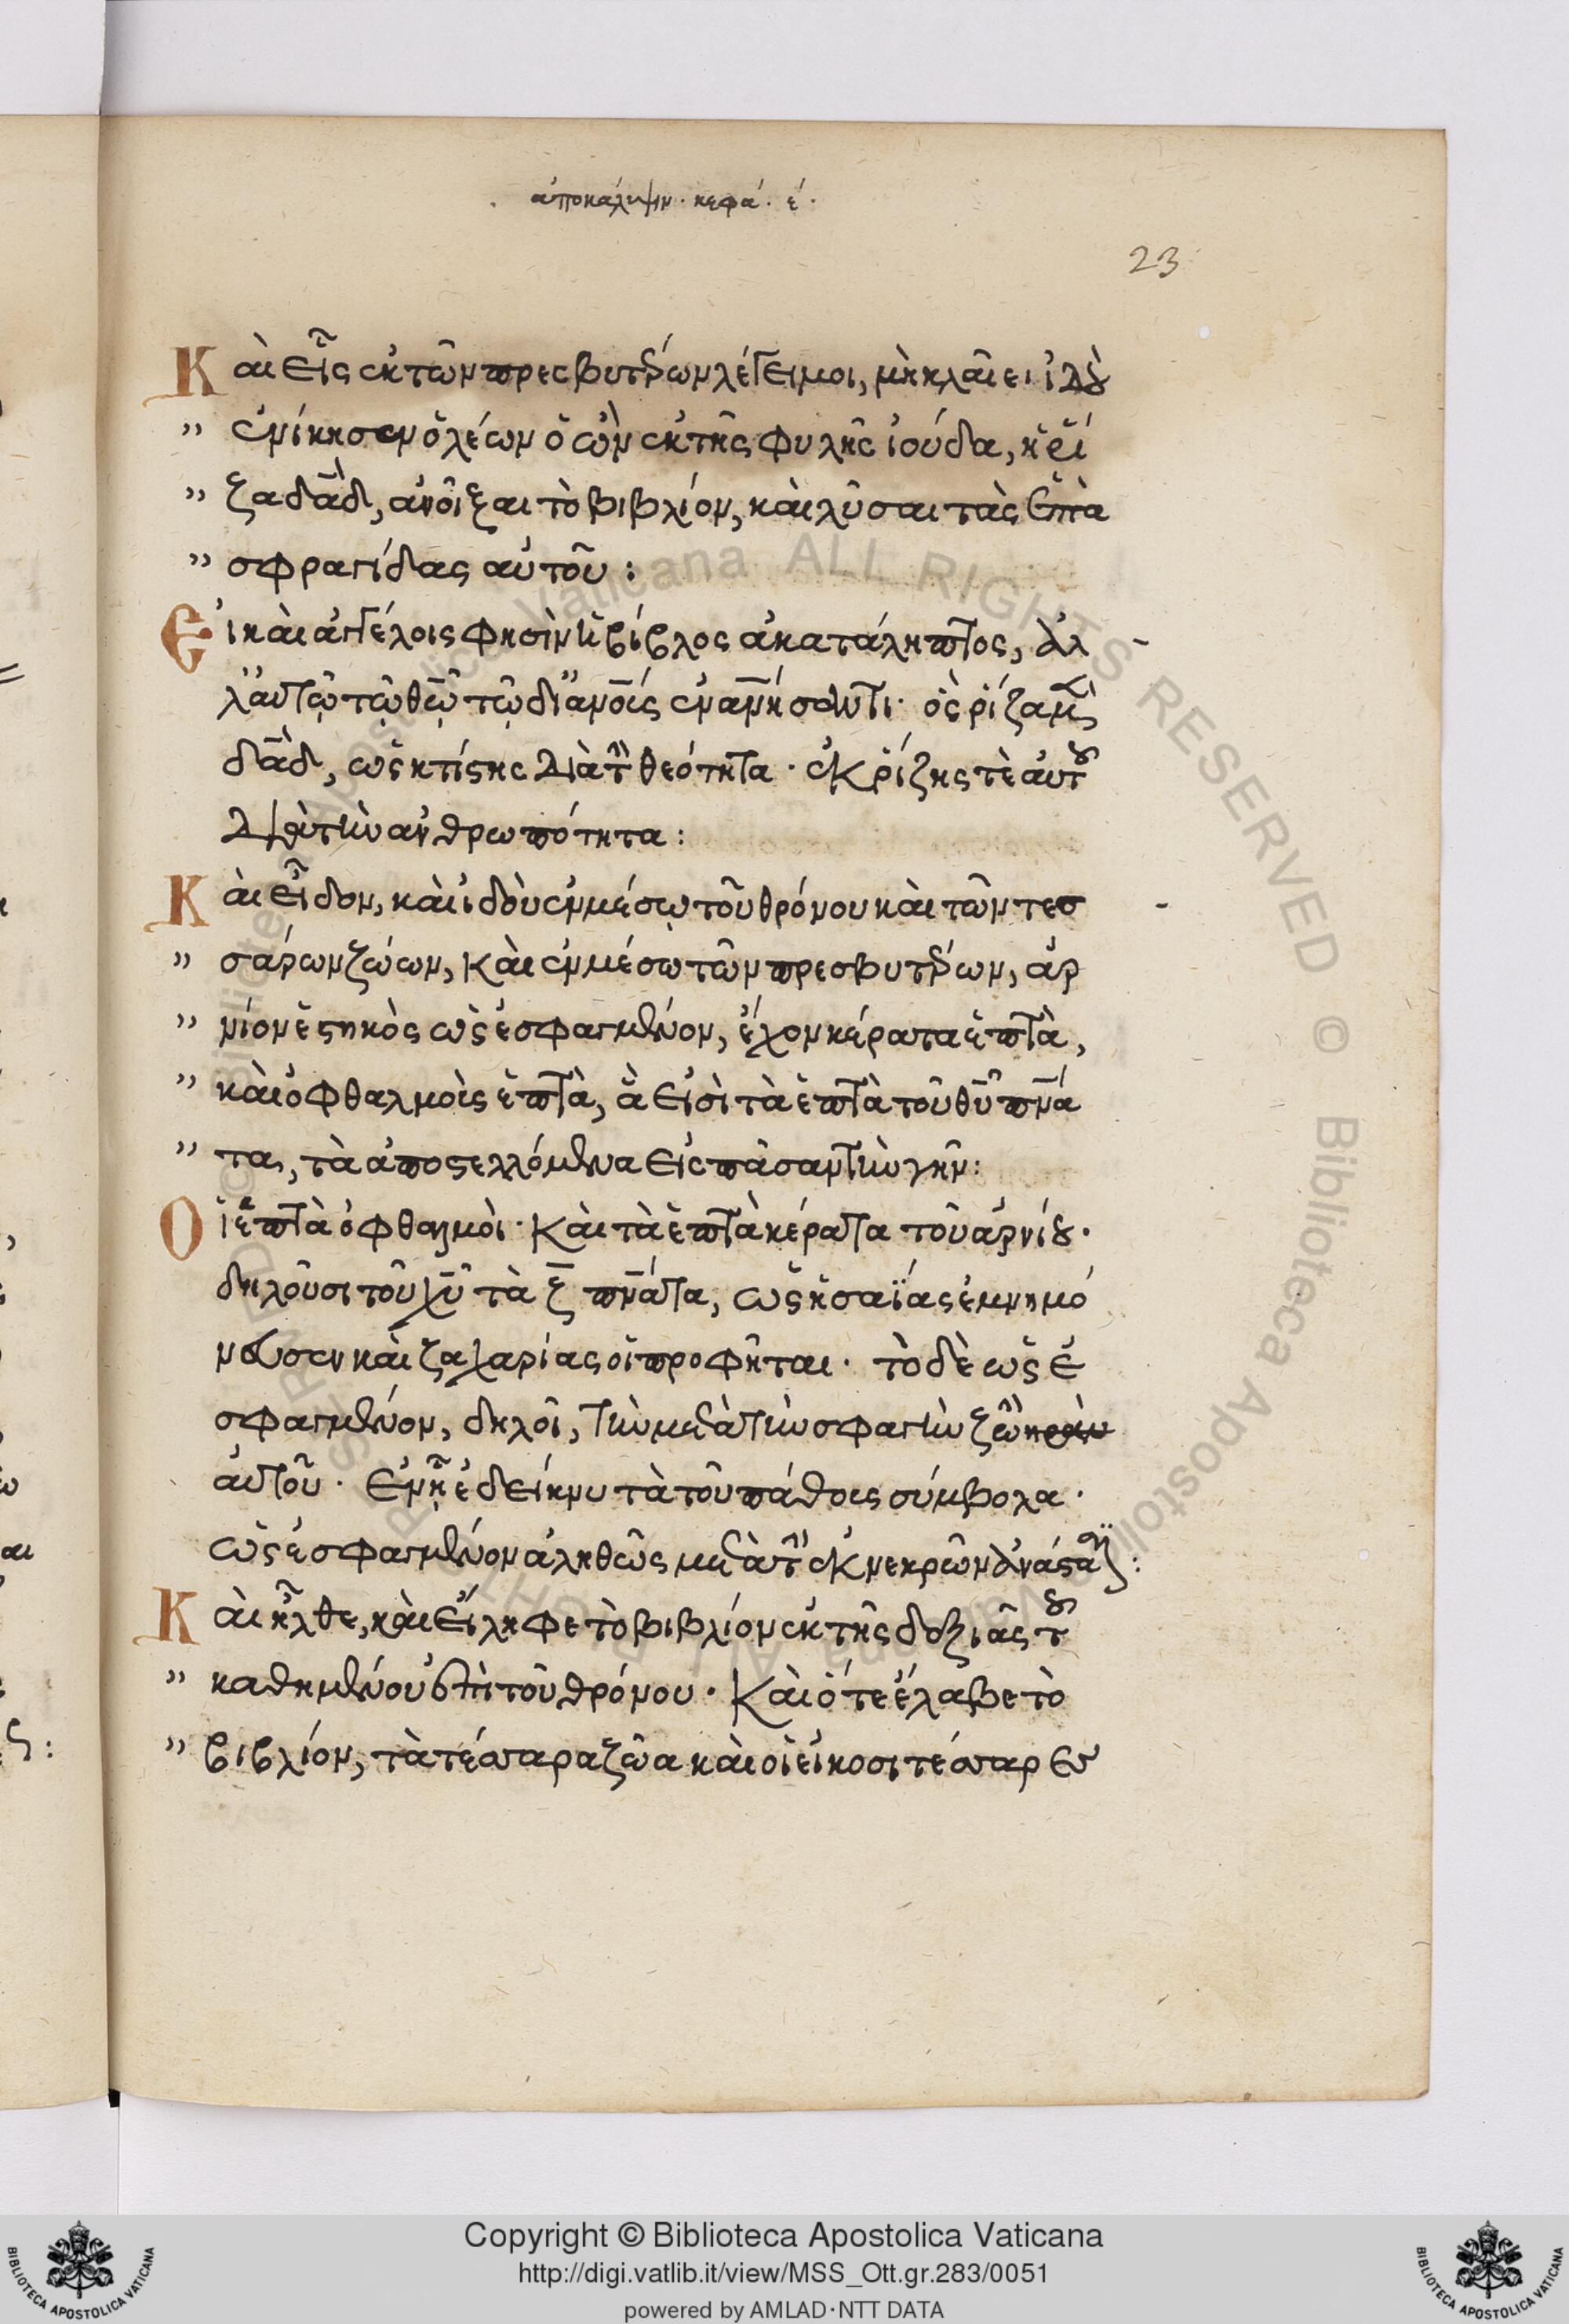 ἀποκάλυψιν· κεφά· έ·
23
Καὶ εἷς ἐκ τῶν πρεσβυτέρων λέγει μοι, μὴ κλαῖε· ἰδοὺ
" ἐνίκησεν ὁ λέων ὁ ὢν ἐκ τῆς φυλῆς ἰούδα, ἡ ῥί
" ζα δᾱδ, ἀνοῖξαι τὸ βιβλίον, καὶ λῦσαι τὰς ἑπτὰ
" σφραγίδας αὐτοῦ :
Εἰ καὶ ἀγγέλοις φησὶν ἡ βίβλος ἀκατάληπτος, ἀλ
λ' αὐτῷ τῷ θ̄ω̄ τῷ δι' ᾱνο̄ις
δᾱδ, ὡς κτίστης διὰ τὴν θεότητα· ἐκ ῥίζης τὲ αὐτοῦ
διὰ τὴν ἀνθρωπότητα :
Καὶ εἶδον, καὶ ἰδοὺ ἐν μέσῳ τοῦ θρόνου καὶ τῶν τεσ
" σάρων ζώων, καὶ ἐν μέσω τῶν πρεσβυτέρων, ἀρ
" νίον ἑστηκὸς ὡς ἐσφαγμένον, ἔχον κέρατα ἑπτὰ,
" καὶ ὀφθαλμοὺς ἑπτὰ, ἅ εἰσὶ τὰ ἑπτὰ τοῦ θ̄ῡ π̄ν̄ά
" τα, τὰ ἀποστελλόμενα εἰς πᾶσαν τὴν γῆν :
Οἱ ἑπτὰ ὀφθαλμοὶ· καὶ τὰ ἑπτὰ κέρατα τοῦ ἀρνίου·
δηλοῦσι τοῦ χ̄ῡ τὰ ζ̄ π̄ν̄άτα, ὡς ἡσαΐας ἐμνημό
νευσεν καὶ ζαχαρίας οἱ προφῆται· τὸ δὲ ὡς ἐ
σφαγμένον, δηλοῖ, τὴν μετὰ τὴν σφαγὴν ζωὴν
αὐτοῦ· ἐν ᾗ ἐδείκνυ τὰ τοῦ πάθους σύμβολα·
ὡς ἐσφαγμένον ἀληθῶς μετὰ τὴν ἐκ νεκρῶν ἀνάστασιν :
Καὶ ἦλθε, καὶ εἴληφε τὸ βιβλίον ἐκ τῆς δεξιᾶς τοῦ
" καθημένου ἐπὶ τοῦ θρόνου· καὶ ὅτε ἔλαβε τὸ
" βιβλίον, τὰ τέσσαρα ζῶα καὶ οἱ εἴκοσι τέσσαρες
Copyright © Biblioteca Apostolica Vaticana
http://digi.vatlib.it/view/MSS_Ott.gr.283/0051
powered by AMLAD·NTT DATA
BIBLIOTECA APOSTOLICA VATICANA
BIBLIOTECA APOSTOLICA VATICANA